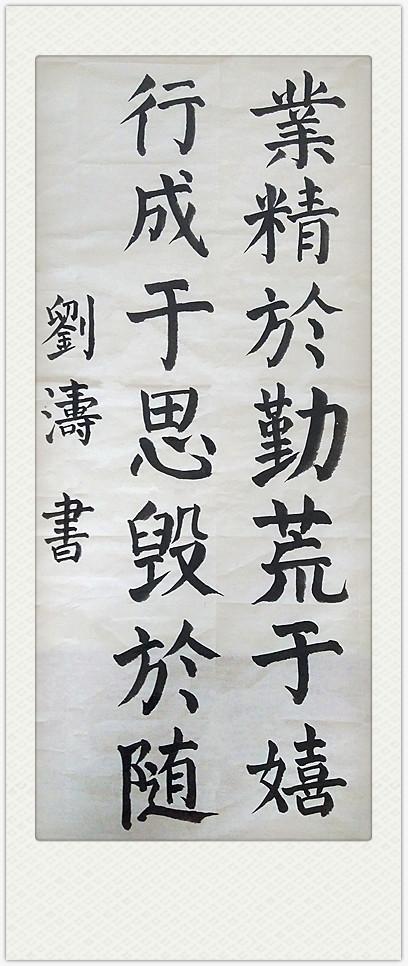 業精於勤荒于嬉
行成于思毁於随
劉濤書